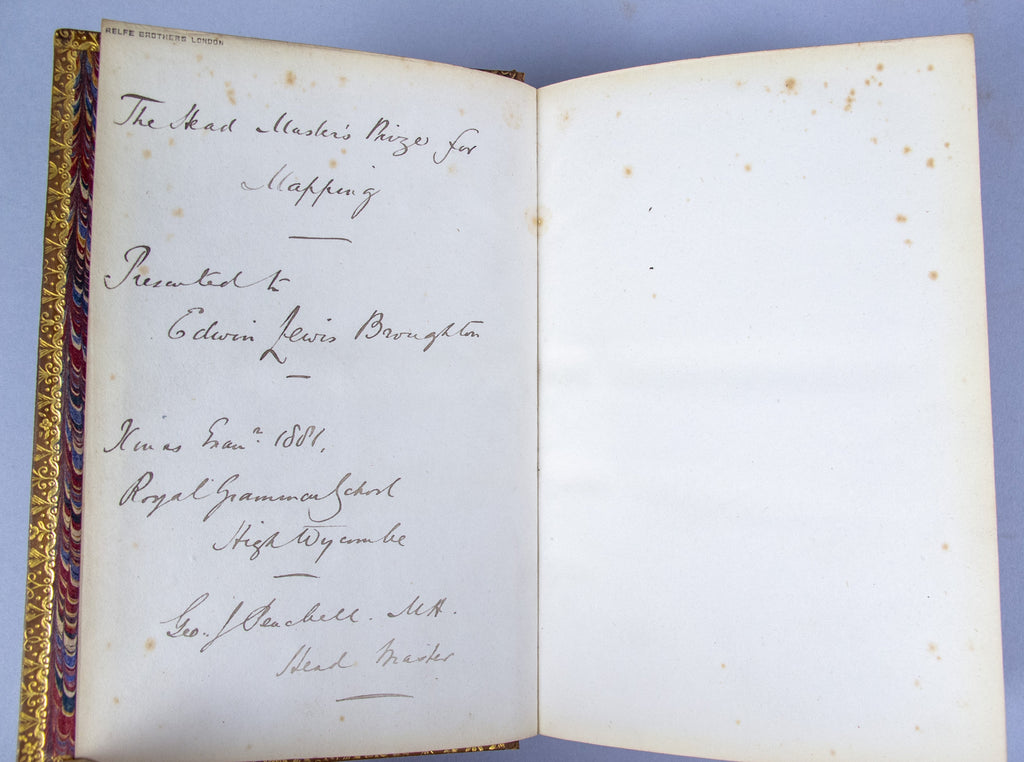 RELFE BROTHERS LONDON
The Head Master's Prize for
Mapping
Presented to
Edwin Lewis Broughton
Xmas Examn 1881.
Royal Grammar School
High Wycombe
Geo. J Peachell. M.A.
Head Master